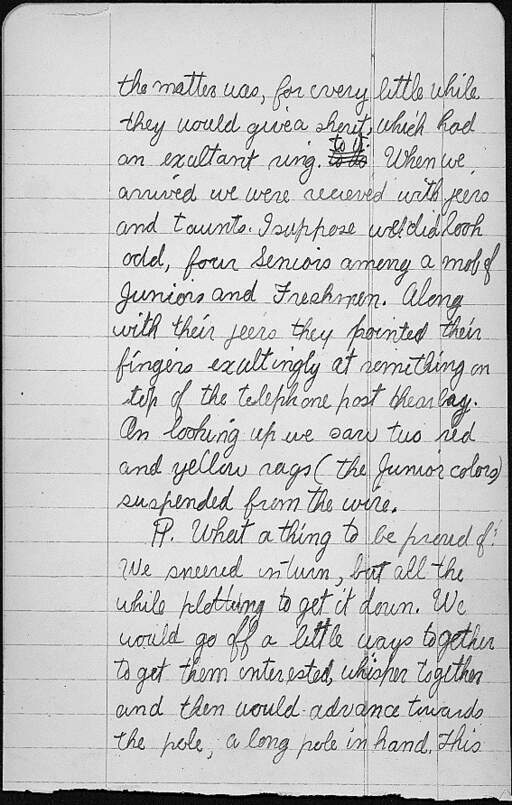 the matter was, for every little while
they would give a shout, which had
an exultant ring. to it. to do When we
arrived we were recieved with jeers
and taunts. I suppose we did look
odd, four Seniors among a mob of
Juniors and Freshmen. Along
with their jeers they pointed their
fingers exultingly at something on
top of the telephone post near by.
On looking up we saw two red
and yellow rags (the Junior colors)
suspended from the wire.
PP. What a thing to be proud of!
We sneered in turn, but all the
while plotting to get it down. We
would go off a little ways together
to get them interested, whisper together
and then would advance towards
the pole, a long pole in hand. This